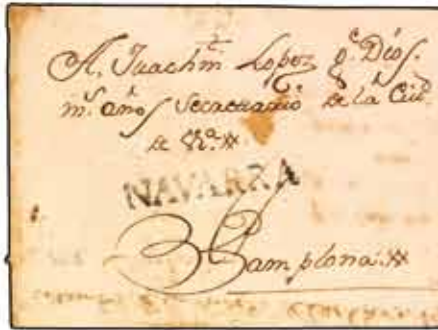 A, Juachm Lopez g.e Dios,
m.s años Secretario de la Ciu.d
de
NAVARRA
Pamplona.